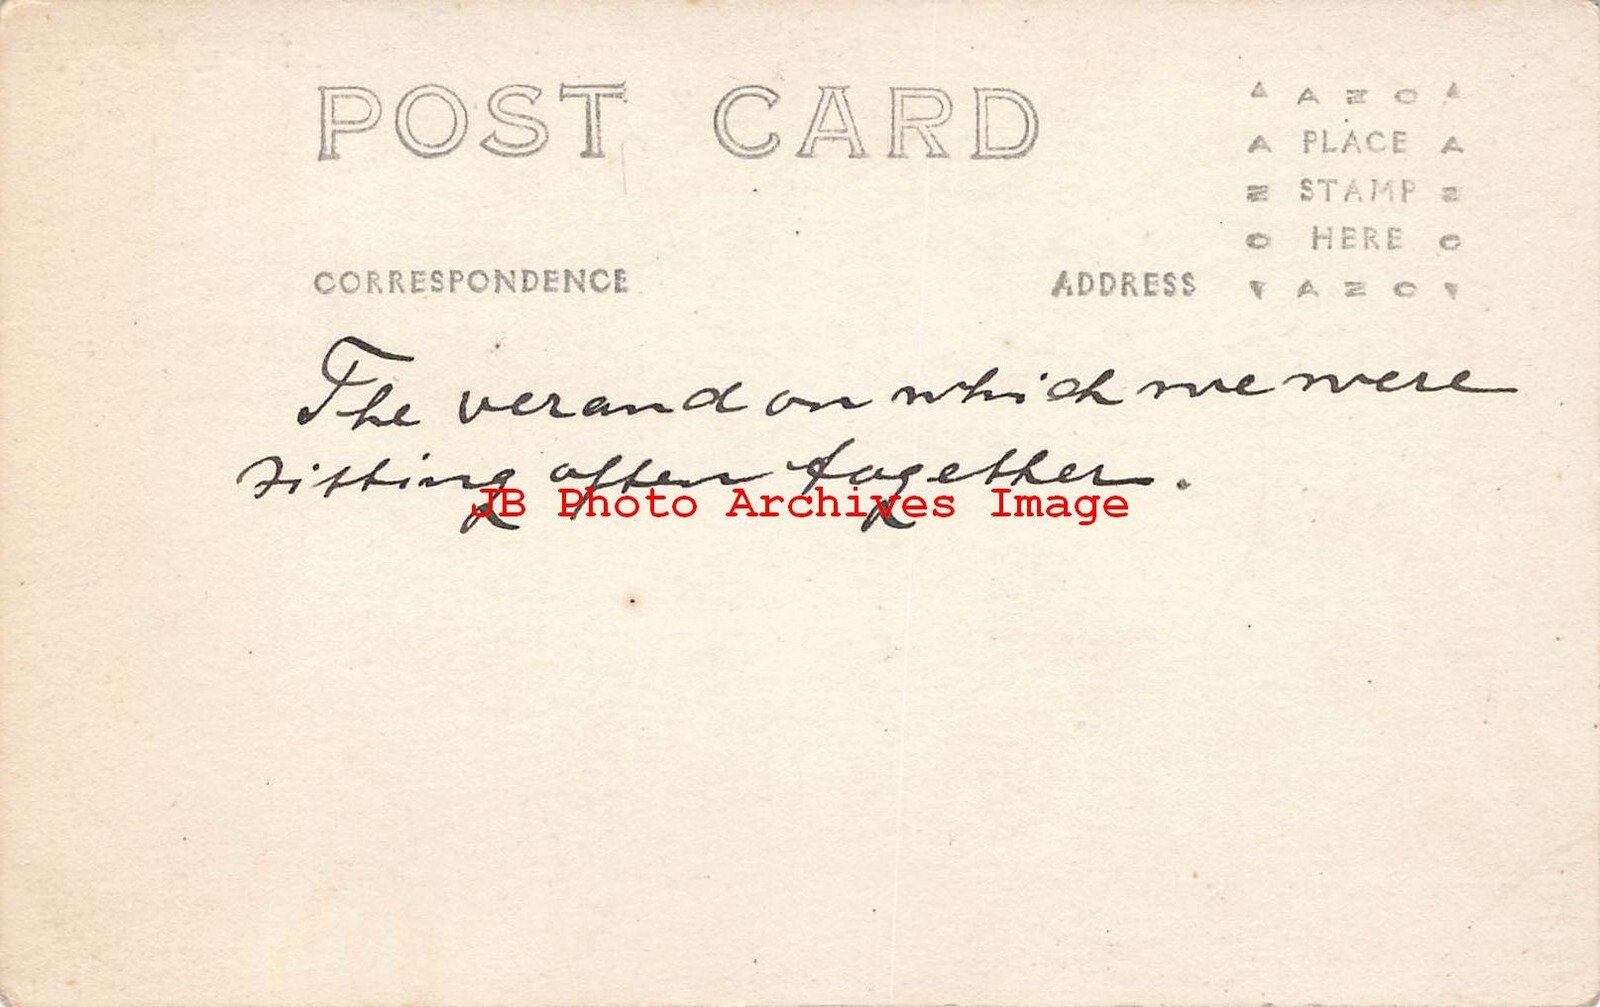 POST CARD
AZO
PLACE
STAMP
HERE
AZO
AZO
AZO
CORRESPONDENCE
ADDRESS
The verand on which we were
sitting often together.
JB Photo Archives Image